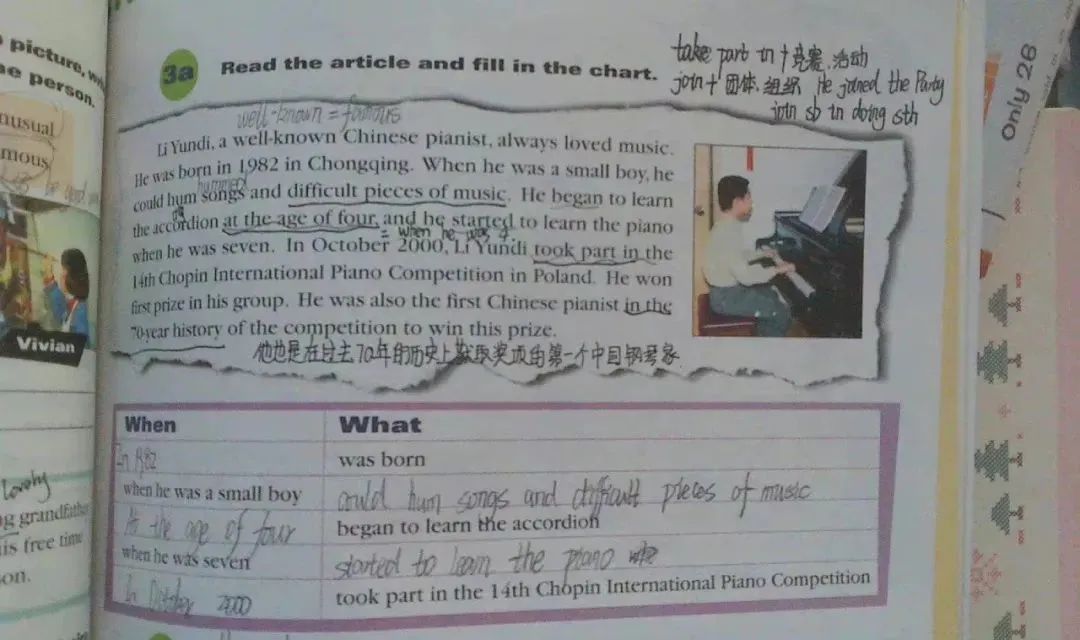 picture, 
e person.
nusual
mous
Vivian
lovely
g grandfather
is free time
on.
3a Read the article and fill in the chart.
take part in + 竞赛.活动
join + 团体.组织 He joined the Party
join sb in doing sth
well-known = famous
Li Yundi, a well-known Chinese pianist, always loved music.
He was born in 1982 in Chongqing. When he was a small boy, he
hummed
could hum songs and difficult pieces of music. He began to learn
the accordion at the age of four, and he started to learn the piano
= when he was 4.
when he was seven. In October 2000, Li Yundi took part in the
14th Chopin International Piano Competition in Poland. He won
first prize in his group. He was also the first Chinese pianist in the
70-year history of the competition to win this prize.
他也是在过去70年的历史上获取奖项的第一个中国钢琴家
When What
In 1982 was born
when he was a small boy could hum songs and difficult pieces of music
At the age of four began to learn the accordion
when he was seven started to learn the piano
In October 2000 took part in the 14th Chopin International Piano Competition
only 26